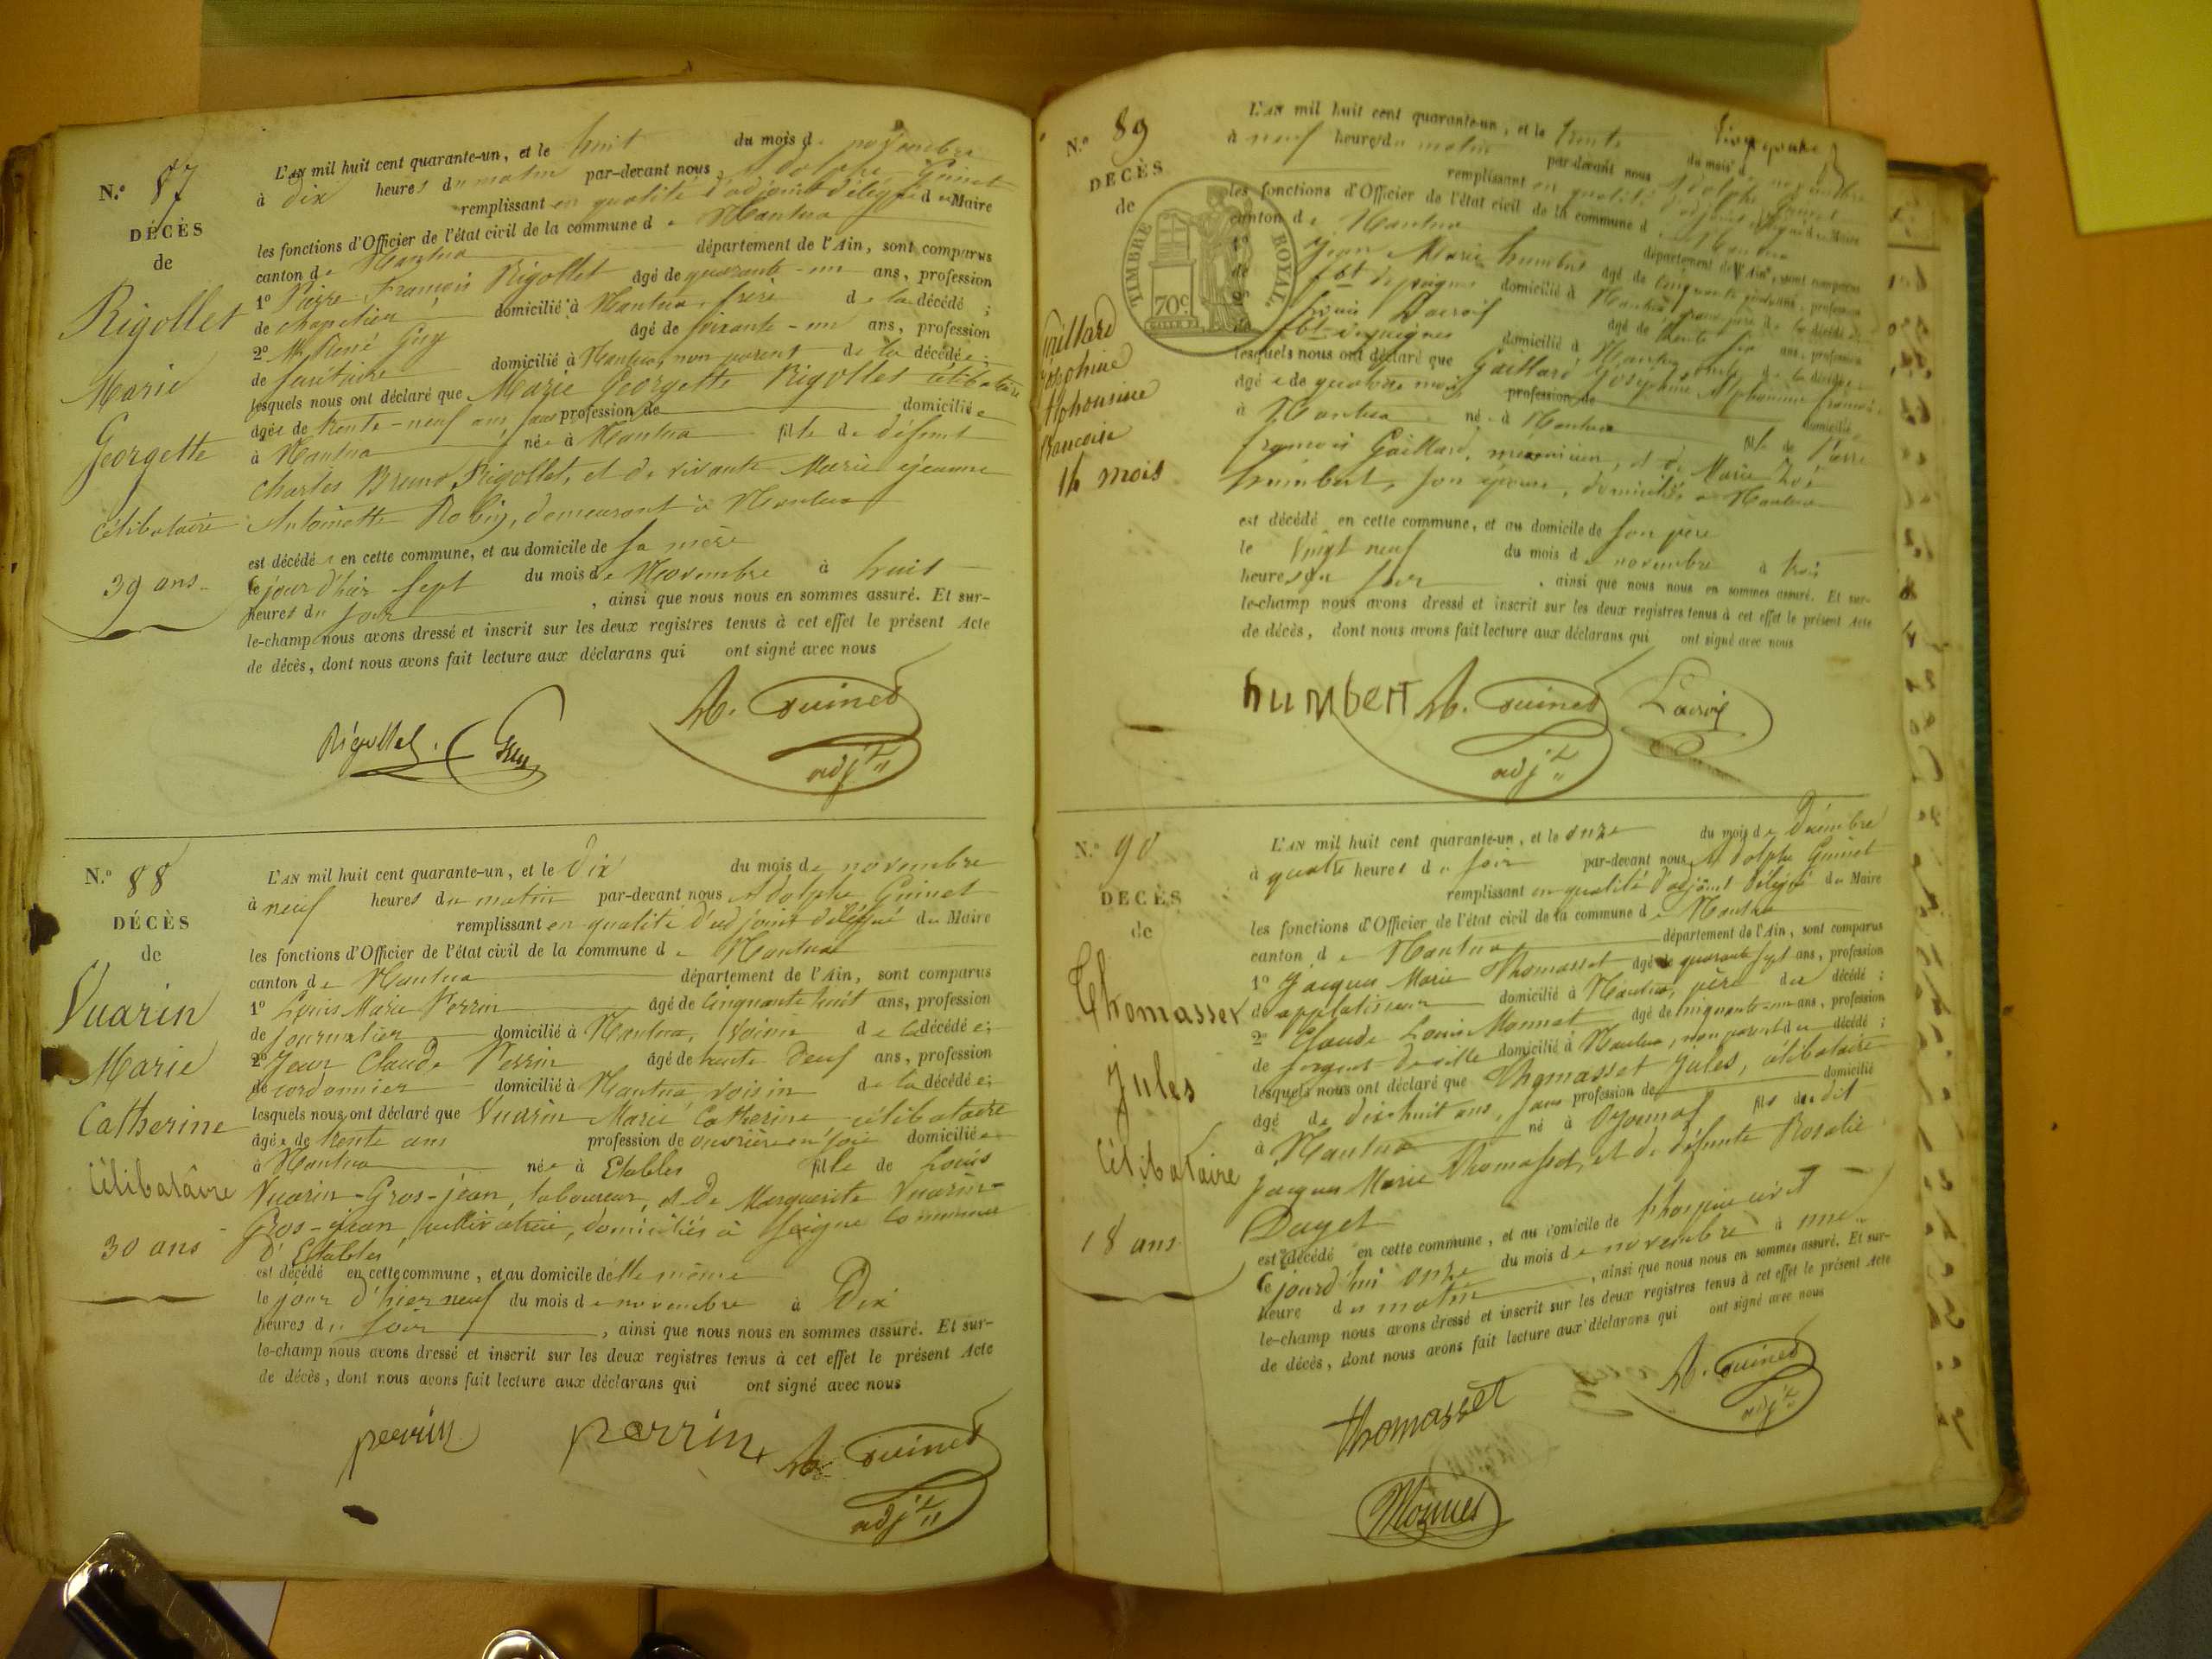 N.° 87
DÉCÈS
de
Rigollet
Marie
Georgette
célibataire
39 ans
L'AN mil huit cent quarante-un, et le huit du mois de novembre
à dix heures du matin par-devant nous Adolphe Guinet
remplissant en qualité d'adjoint délégué du Maire
les fonctions d'Officier de l'état civil de la commune de Nantua
canton de Nantua département de l'Ain, sont comparus
1° Pierre François Rigollet âgé de quarante-un ans, profession
de chapelier domicilié à Nantua, frère de la décédée ;
2° Mr René Guy âgé de soixante-un ans, profession
de domicilié à Nantua, non parent de la décédée ;
lesquels nous ont déclaré que Marie Georgette Rigollet célibataire
âgée de trente-neuf ans, sans profession de domiciliée
à Nantua née à Nantua fille de défunt
Charles Bruno Rigollet, et de vivante Marie Jeanne
Antoinette Robin, demeurant à Nantua
est décédée en cette commune, et au domicile de sa mère
le jour d'hier sept du mois de Novembre à huit
heures du soir , ainsi que nous nous en sommes assuré. Et sur-
le-champ nous avons dressé et inscrit sur les deux registres tenus à cet effet le présent Acte
de décès, dont nous avons fait lecture aux déclarans qui ont signé avec nous
Rigollet Guy A. Guinet
adjt
N.° 88
DÉCÈS
de
Vuarin
Marie
Catherine
Célibatâire
30 ans
L'AN mil huit cent quarante-un, et le dix du mois de novembre
à neuf heures du matin par-devant nous Adolphe Guinet
remplissant en qualité d'adjoint délégué du Maire
les fonctions d'Officier de l'état civil de la commune de Nantua
canton de Nantua département de l'Ain, sont comparus
1° Louis Marie Perrin âgé de cinquante huit ans, profession
de journalier domicilié à Nantua, voisin de la décédée ;
2° Jean Claude Perrin âgé de trente neuf ans, profession
de cordonnier domicilié à Nantua, voisin de la décédée ;
lesquels nous ont déclaré que Vuarin Marie Catherine célibataire
âgée de trente ans profession de ouvrière en soie domiciliée
à Nantua née à Etables fille de Louis
Vuarin-Gros-jean, laboureur, et de Marguerite Vuarin-
Gros-jean, cultivatrice, domiciliés à commune
d'Etables
est décédé en cette commune, et au domicile de elle même
le jour d'hier neuf du mois de novembre à Dix
heures du soir , ainsi que nous nous en sommes assuré. Et sur-
le-champ nous avons dressé et inscrit sur les deux registres tenus à cet effet le présent Acte
de décès, dont nous avons fait lecture aux déclarans qui ont signé avec nous
perrin perrin A. Guinet
adjt
N.° 89
DÉCÈS
de
TIMBRE ROYAL.
70c
Gaillard
Josephine
Alphonsine
Francoise
14 mois
L'AN mil huit cent quarante-un, et le trente du mois de novembre
à neuf heures du matin par-devant nous Adolphe Guinet
remplissant en qualité d'adjoint délégué du Maire
les fonctions d'Officier de l'état civil de la commune de Nantua
canton de Nantua département de l'Ain, sont comparus
1° Jean Marie humbert âgé de cinquante ans, profession
de fbt de peignes domicilié à Nantua, grand père de la décédée
2° Louis Lacroix âgé de trente six ans, profession
de fbt de peignes domicilié à Nantua, de la décédée
lesquels nous ont déclaré que Gaillard Joséphine Alphonsine françoise
âgée de quatorze mois profession de domiciliée
à Nantua née à Nantua fille de Pierre
françois Gaillard, mécanicien, et de Marie Zoé
humbert, son épouse, domiciliés à Nantua
est décédé en cette commune, et au domicile de son père
le vingt neuf du mois de novembre à trois
heures du soir , ainsi que nous nous en sommes assuré. Et sur-
le-champ nous avons dressé et inscrit sur les deux registres tenus à cet effet le présent Acte
de décès, dont nous avons fait lecture aux déclarans qui ont signé avec nous
humbert A. Guinet Lacroix
adjt
N.° 90
DÉCÈS
de
Thomasset
Jules
Célibataire
18 ans
L'AN mil huit cent quarante-un, et le onze du mois de Décembre
à quatre heures du soir par-devant nous Adolphe Guinet
remplissant en qualité d'adjoint délégué du Maire
les fonctions d'Officier de l'état civil de la commune de Nantua
canton de Nantua département de l'Ain, sont comparus
1° Jacques Marie Thomasset âgé de quarante sept ans, profession
de applatisseur domicilié à Nantua, père du décédé ;
2° Claude Louis Monnet âgé de cinquante-un ans, profession
de sergent de ville domicilié à Nantua, non parent du décédé ;
lesquels nous ont déclaré que Thomasset Jules, célibataire
âgé de dix-huit ans, sans profession de domicilié
à Nantua né à Oyonnax fils du dit
Jacques Marie Thomasset, et de défunte Rosalie
Duget
est décédé en cette commune, et au domicile de l'hospice civil
le jourd'hui onze du mois de novembre à une
heure du matin , ainsi que nous nous en sommes assuré. Et sur-
le-champ nous avons dressé et inscrit sur les deux registres tenus à cet effet le présent Acte
de décès, dont nous avons fait lecture aux déclarans qui ont signé avec nous
Thomasset A. Guinet
adjt
Monnet